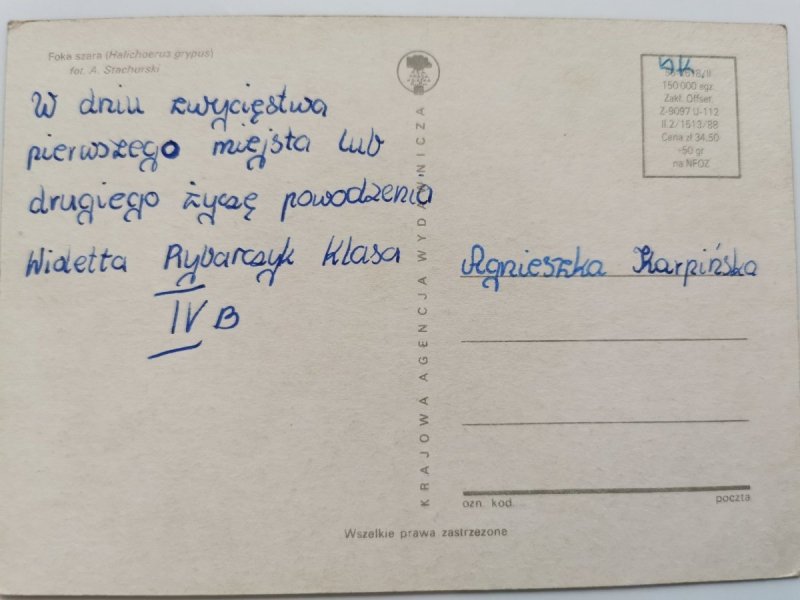 Foka szara (Halichoerus grypus)
fot. A. Stachurski
W dniu zwycięstwa
pierwszego miejsta lub
drugiego życzę powodzenia
Wioletta Rybarczyk klasa
IV B
KRAJOWA AGENCJA WYDAWNICZA
150 000 egz.
Zakł. Offset.
Z-9097 U-112
II.2/1513/88
Cena zł 34,50
+50 gr
na NFOZ
Agnieszka Karpińska
ozn. kod.
poczta
Wszelkie prawa zastrzeżone